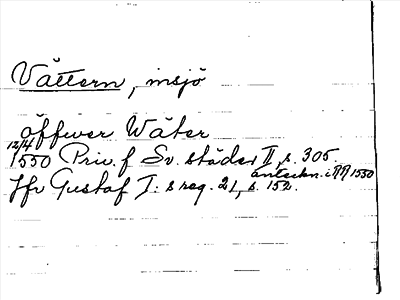 Vättern, insjö
öffwer Wäter
12/4 1550 Priv. f Sv. städer II, s. 305.
anteckn. i RR 1550
Jfr Gustaf I: s reg. 21, s. 152.